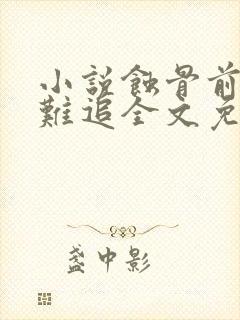 小説蝕骨前
難追全文免
盞中影